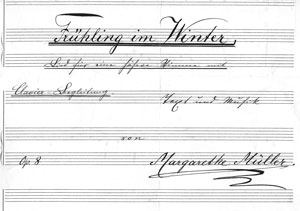 Frühling im Winter,
Lied für eine höhere Stimme mit
Clavier-Begleitung. Text und Musik
von
Op. 8 Margarethe Müller.